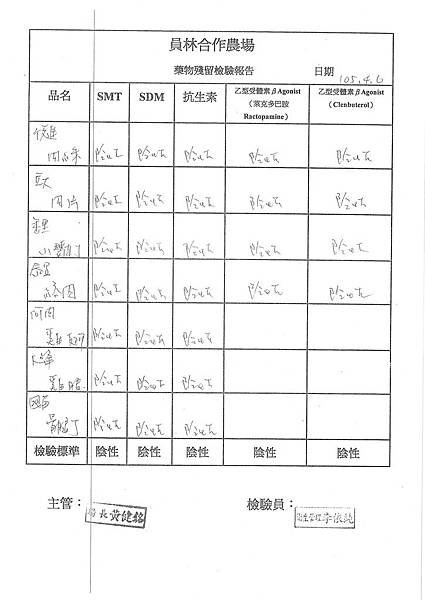 員林合作農場
藥物殘留檢驗報告
日期 105.4.6
品名 SMT SDM 抗生素 乙型受體素βAgonist（萊克多巴胺 Ractopamine） 乙型受體素βAgonist (Clenbuterol)
陰性 陰性 陰性 陰性 陰性
肉片 陰性 陰性 陰性 陰性 陰性
陰性 陰性 陰性 陰性 陰性
陰性 陰性 陰性 陰性 陰性
陰性 陰性 陰性
陰性 陰性 陰性
陰性 陰性 陰性
檢驗標準 陰性 陰性 陰性 陰性 陰性
主管： 黃健銘
檢驗員： 衛生管理李依純